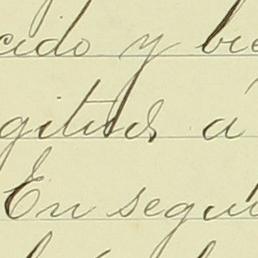 cido y bie
gitud á
En segui